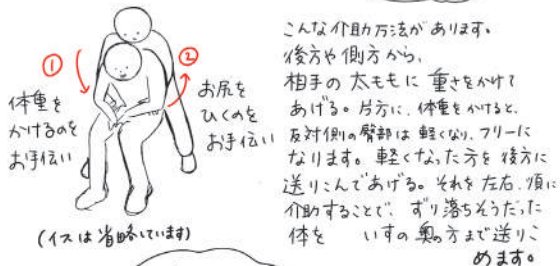 ①
②
体重を
かけるのを
お手伝い
お尻を
ひくのを
お手伝い
(イスは省略しています)
こんな介助方法があります。
後方や側方から、
相手の太ももに重さをかけて
あげる。片方に、体重をかけると、
反対側の臀部は軽くなり、フリーに
なります。軽くなった方を後方に
送りこんであげる。それを左右、順に
介助することで、ずり落ちそうだった
体を いすの奥の方まで送りこ
めます。